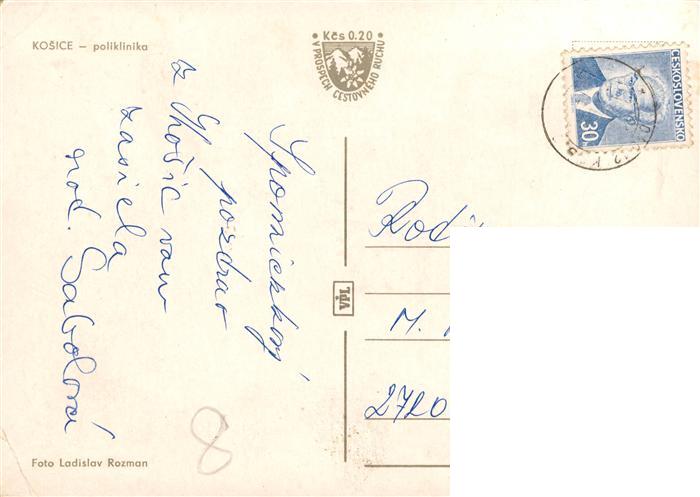 KOŠICE – poliklinika
• Kčs 0.20 •
V PROSPĚCH CESTOVNÉHO RUCHU
ČESKOSLOVENSKO
30
Spomienkový
pozdrav
z Košíc vám
zasiela
rod. Gabolová
Rodi
VďT
M.
2720
8
Foto Ladislav Rozman